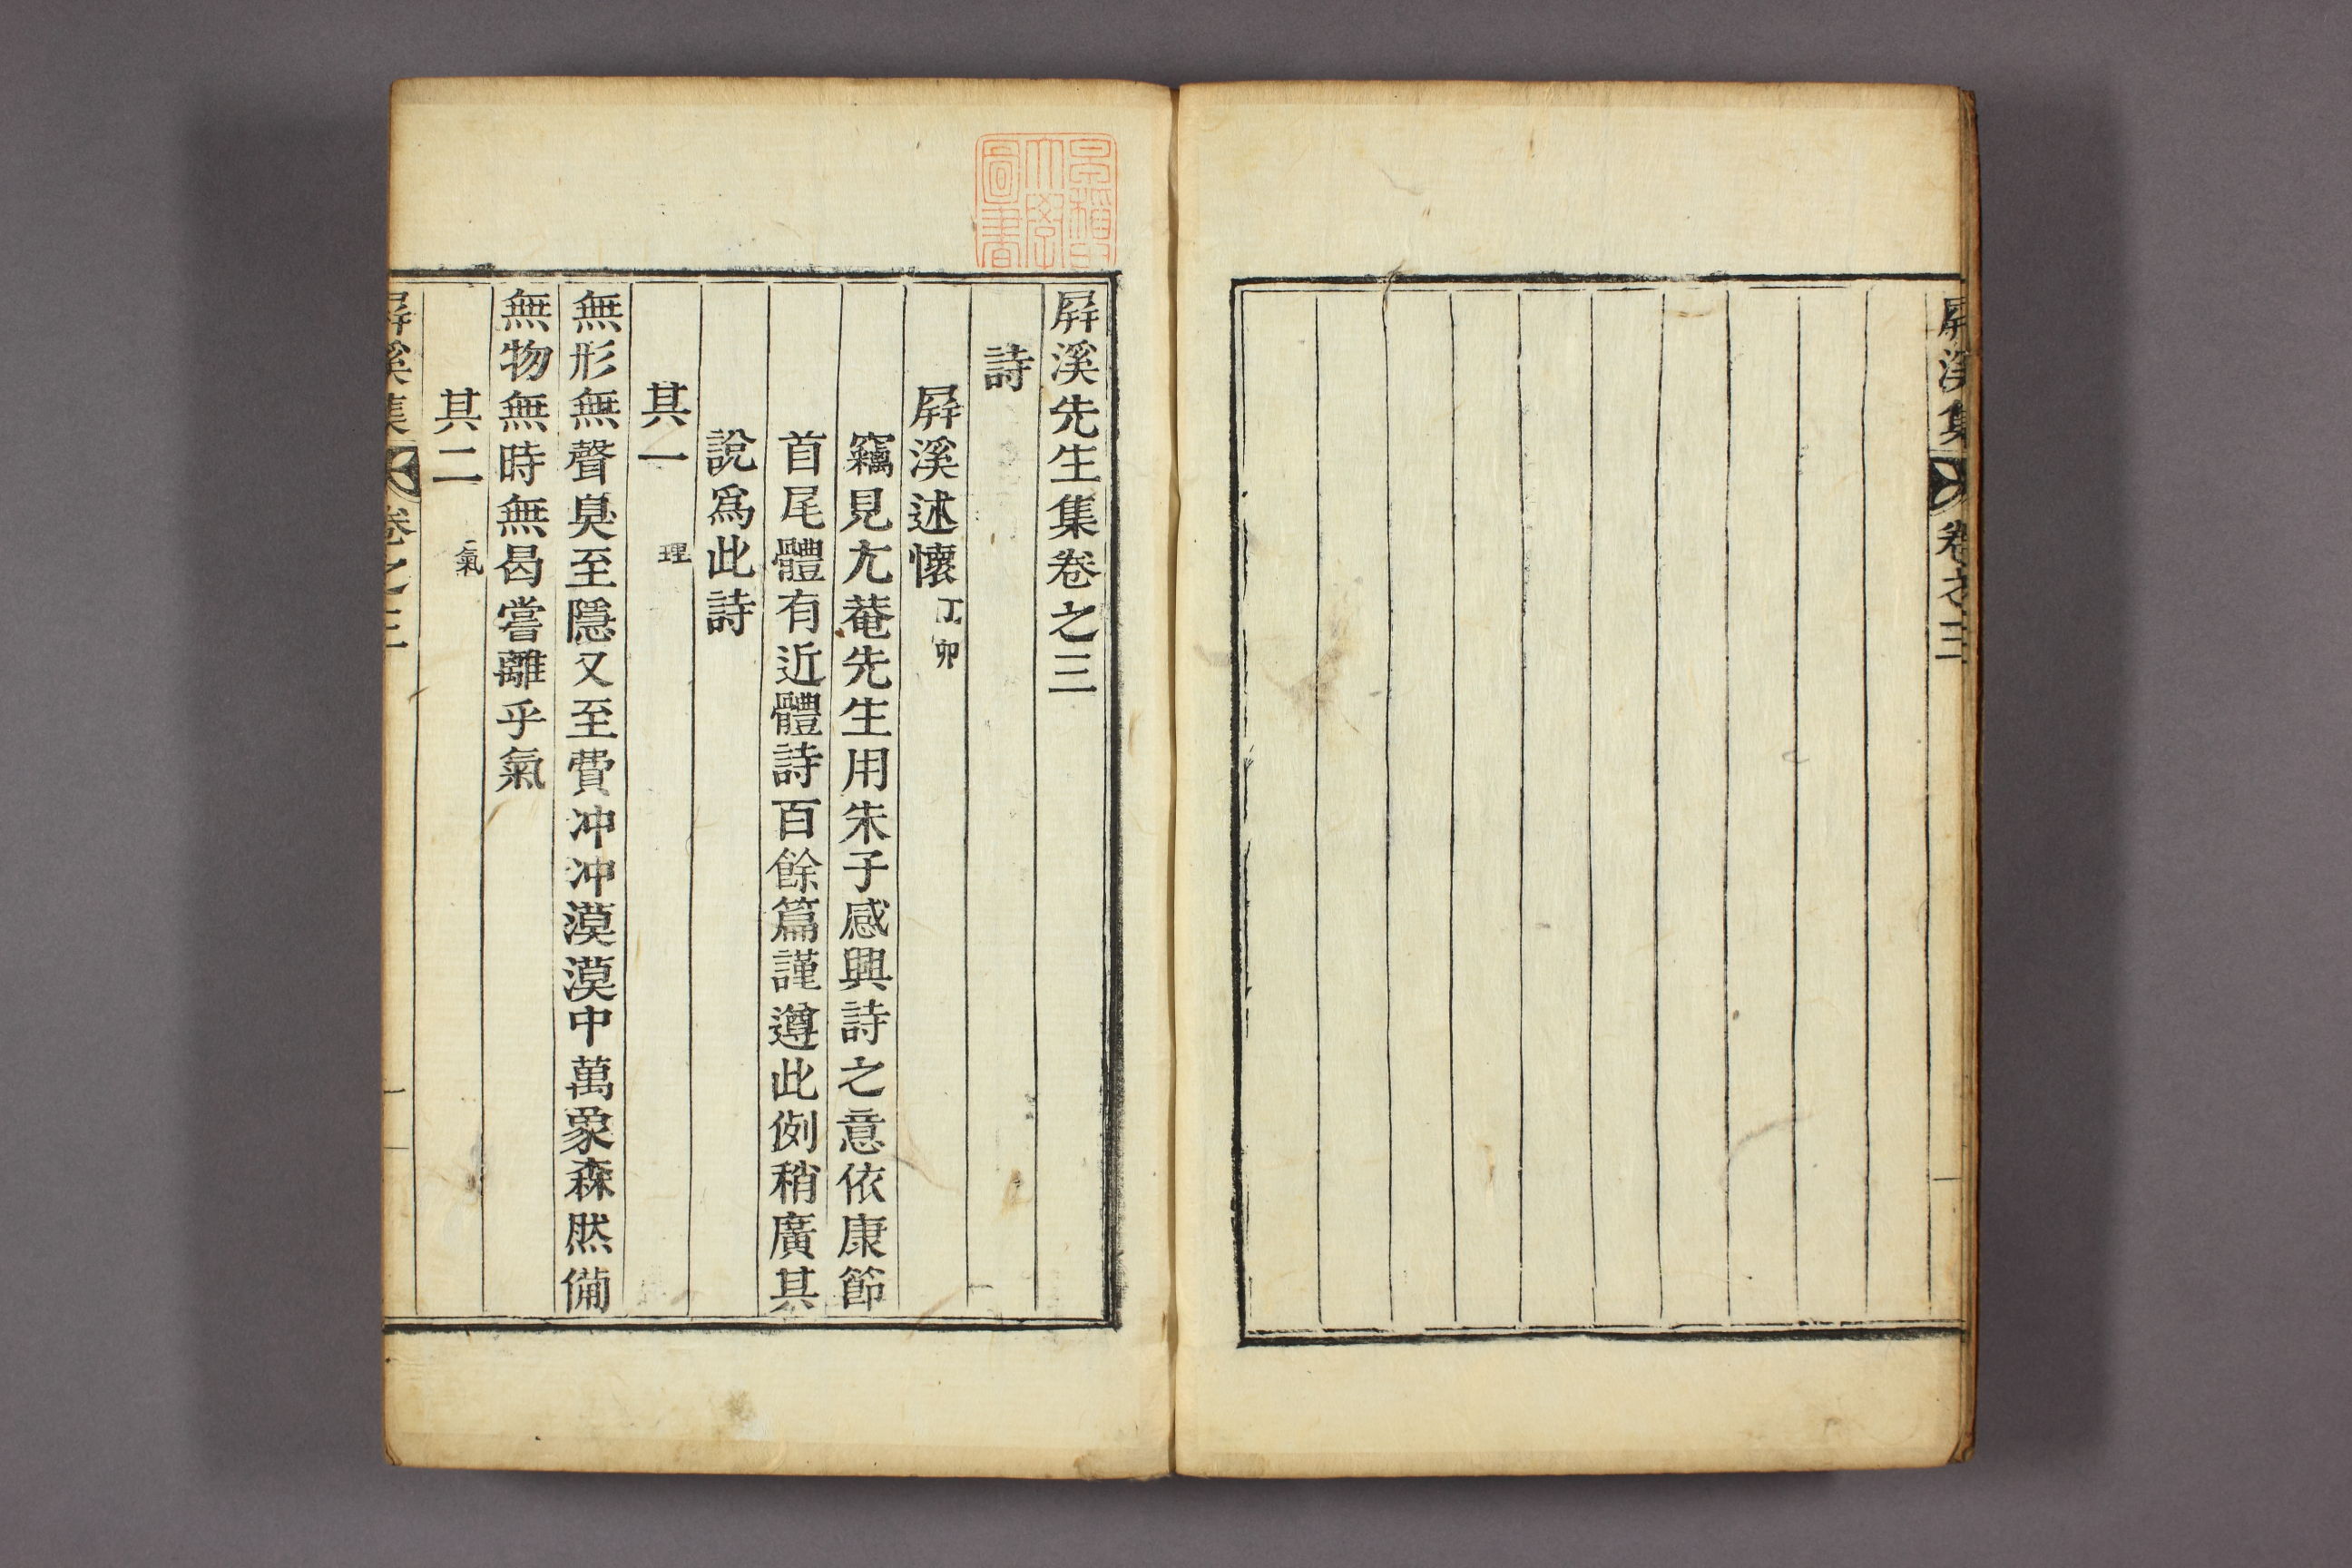 屛溪集 卷之三
屛溪先生集卷之三
詩
屛溪述懷 丁卯
竊見尢菴先生用朱子感興詩之意依康節
首尾體有近體詩百餘篇謹遵此例稍廣其
說爲此詩
其一 理
無形無聲臭至隱又至費冲冲漠漠中萬象森然備
無物無時無曷嘗離乎氣
其二 氣
屛溪集 卷之三 一